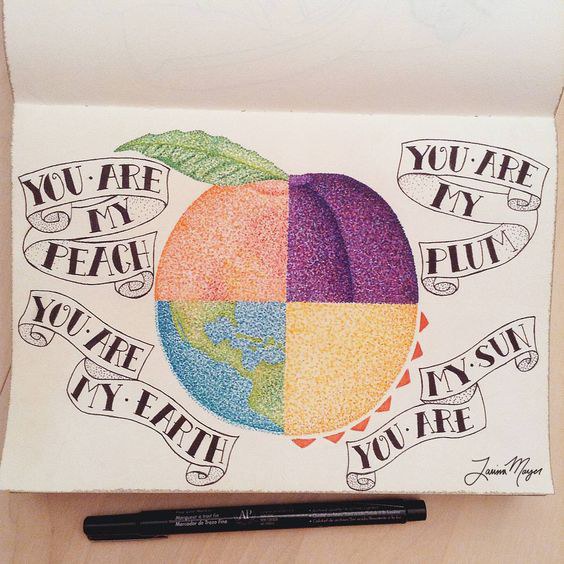 YOU · ARE
MY
PEACH
YOU · ARE
MY
PLUM
YOU · ARE
MY · EARTH
MY · SUN
YOU · ARE
Marqueur à trait fin
AP
Marcador de Trazo Fino